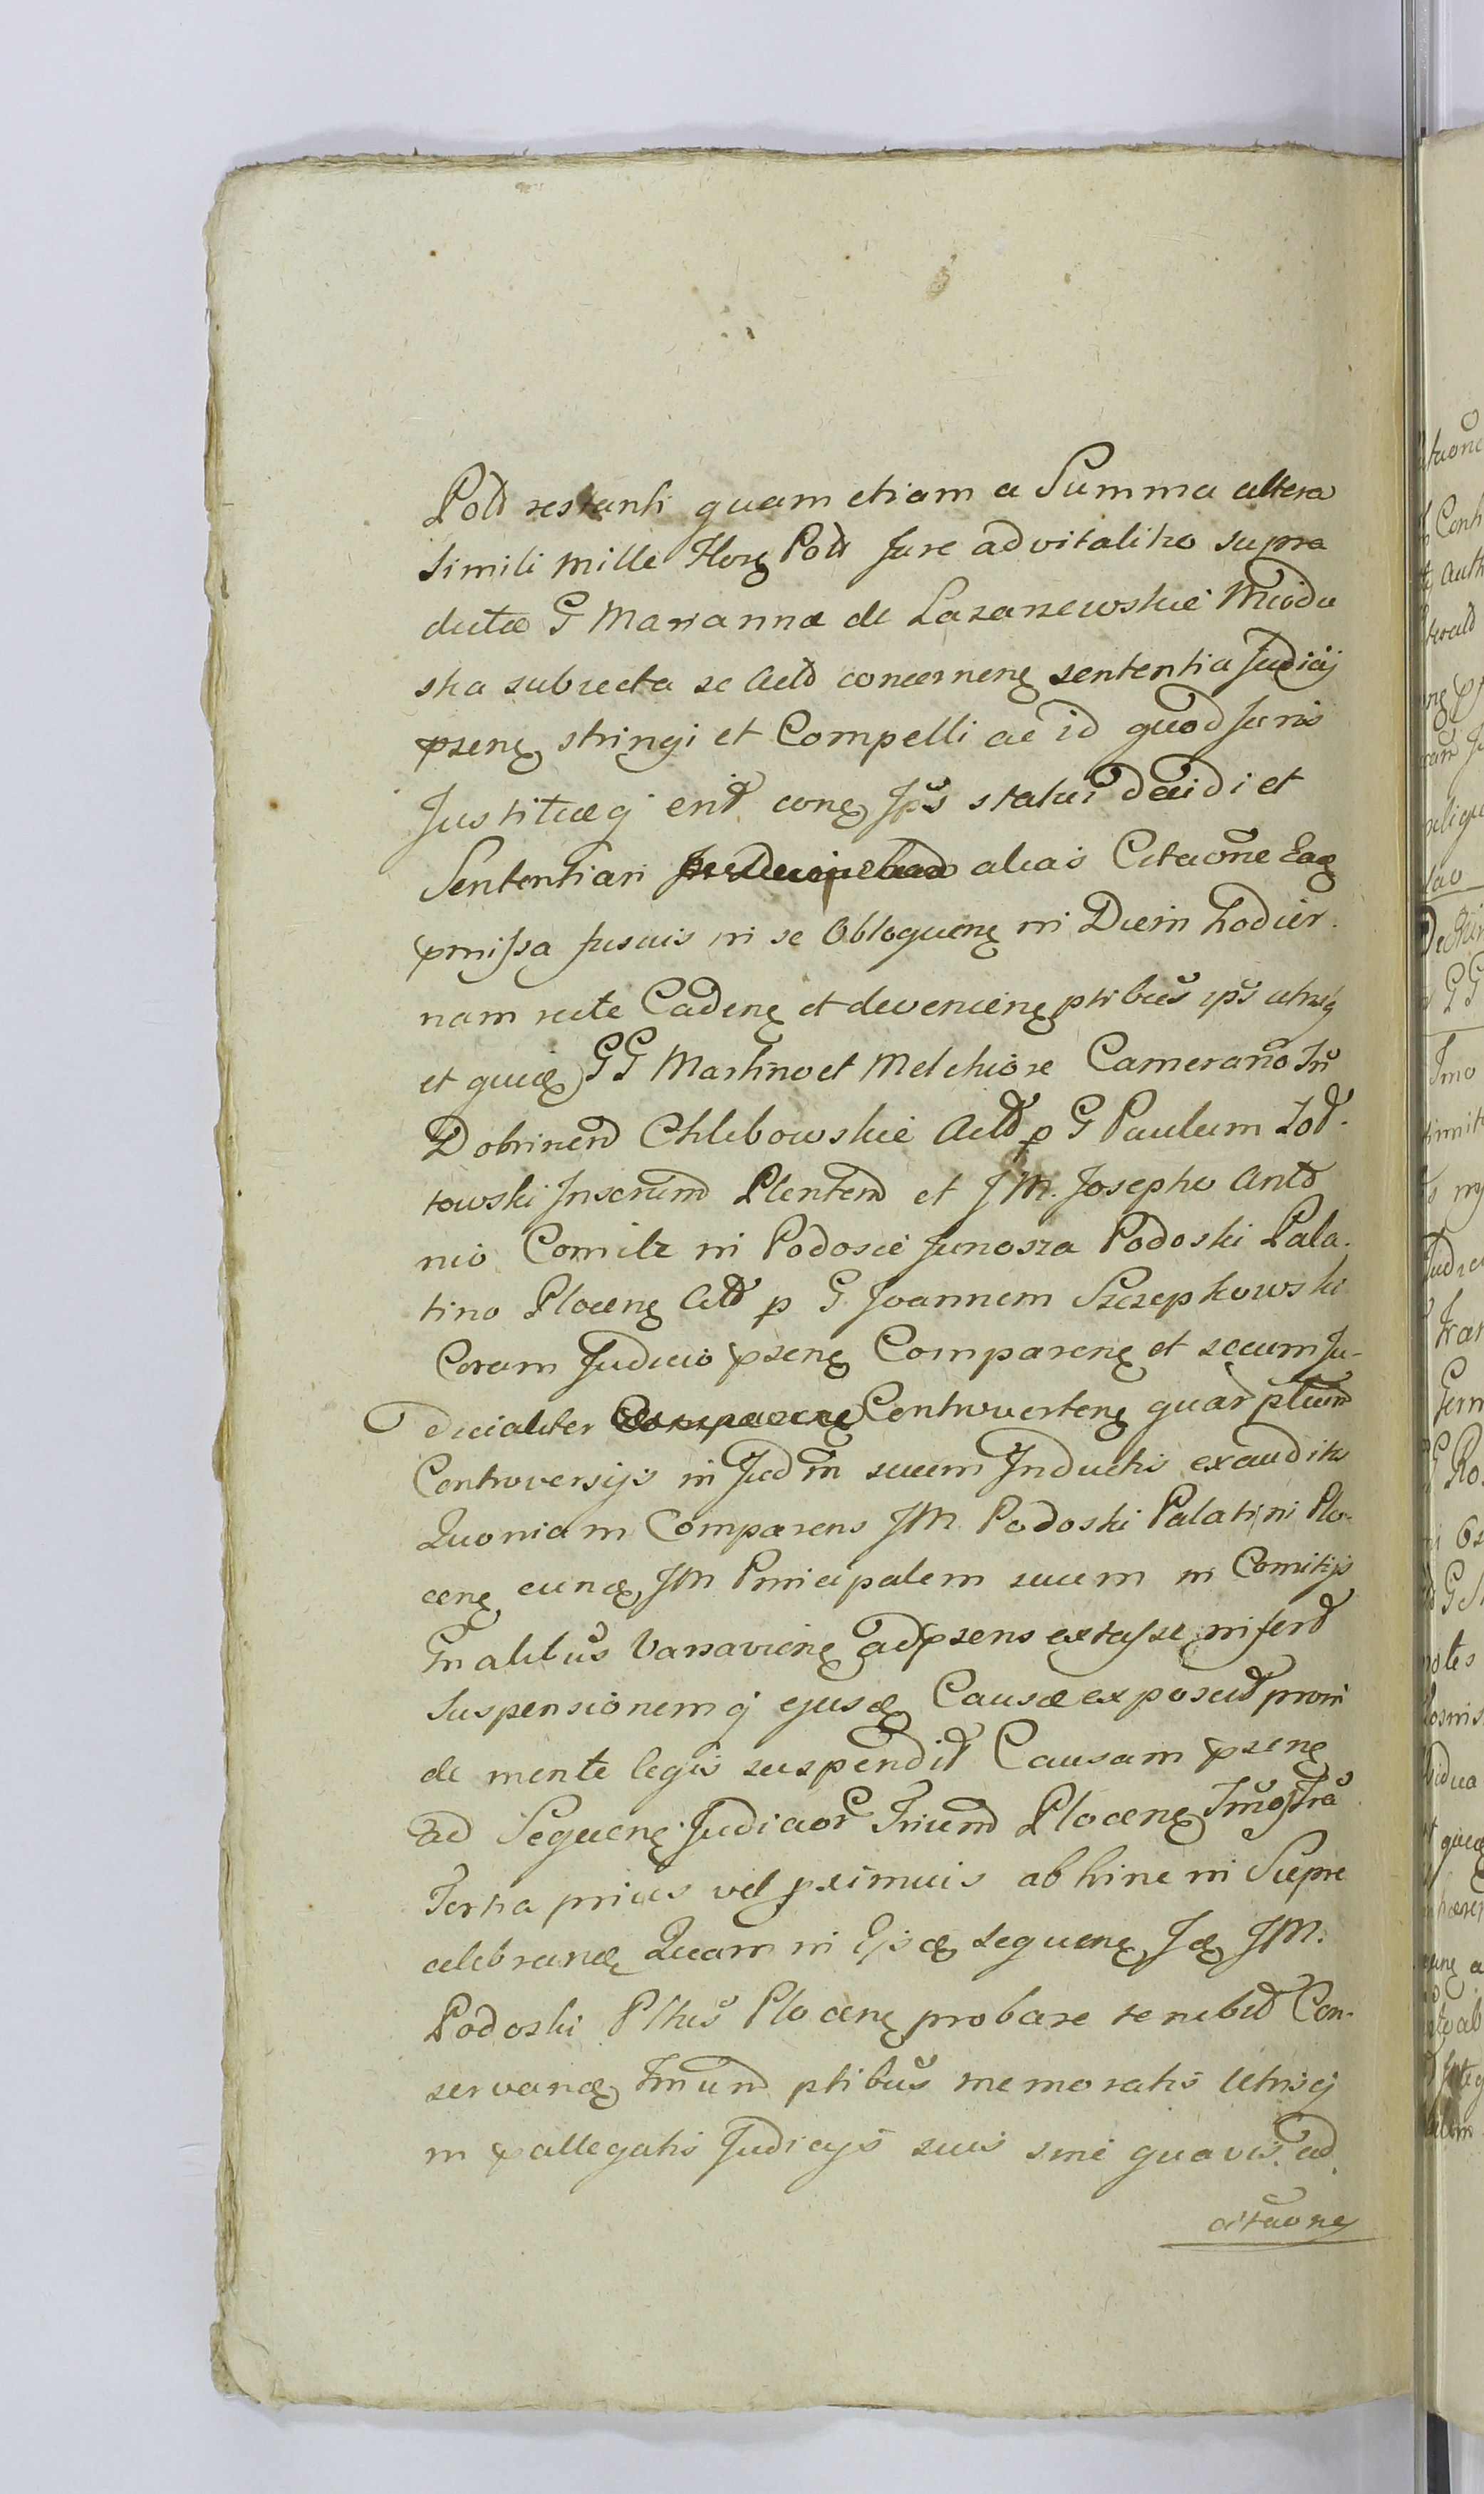 Pold restanti quam etiam a Summa altera
simili mille Floreꝝ Pold Jure advitalitio supra
dictæ G Mariannæ de Lazarzewskie Miodu
ska subiecta se Actd concernenꝫ sententia Judicij
pꝛsenꝫ stringi et Compelli ac id quod Juris
Justitiæqꝫ erit conꝫ Jp̃s statui decidi et
Sententiari alias Citaõne Eaꝫ
p̃missa fusius in se Obloquenꝫ in Diem hodier.
nam recte Cadenꝫ et devenienꝫ ptibus ip̃s utrisqꝫ
et quidꝫ GG Martino et Melchiore Cameraño Tri
Dobrinend Chlebowskie Actd p G Paulum Zod.
towski Inscrium̃d Plentend et JM. Josepho Antd
nio Comite in Podosie Junosza Podoski Pala.
tino Plocenꝫ Citd p G. Joannem Szczepkowski
Coram Judicio pꝛsenꝫ Comparenꝫ et secum Ju-
dicialiter Controvertenꝫ quar ptium̃d
Controversijs in Judm suum Inductis exauditis
Quoniam Comparens JM. Podoski Palatini Plo-
cenꝫ eundꝫ JM Principalem suum in Comitijs
Gnalibus Varsavienꝫ adpꝛsens extasse inferd
suspensionemqꝫ ejusdꝫ Causæ exposcit proin
de mente legis suspendit Causam pꝛsenꝫ
ad Sequenꝫ Judicior Triumd Plocenꝫ
Tertia prius vel pximius abhinc in Supre
celebrandꝫ Quam in Ejsdꝫ sequenꝫ Jdꝫ JM.
Podoski Pltus Plocenꝫ probare tenebit Con-
servandꝫ Tmium̃d ptibus memoratis Utrisqꝫ
in pallegatis Judicijs suis sine quavis ad
citaõne